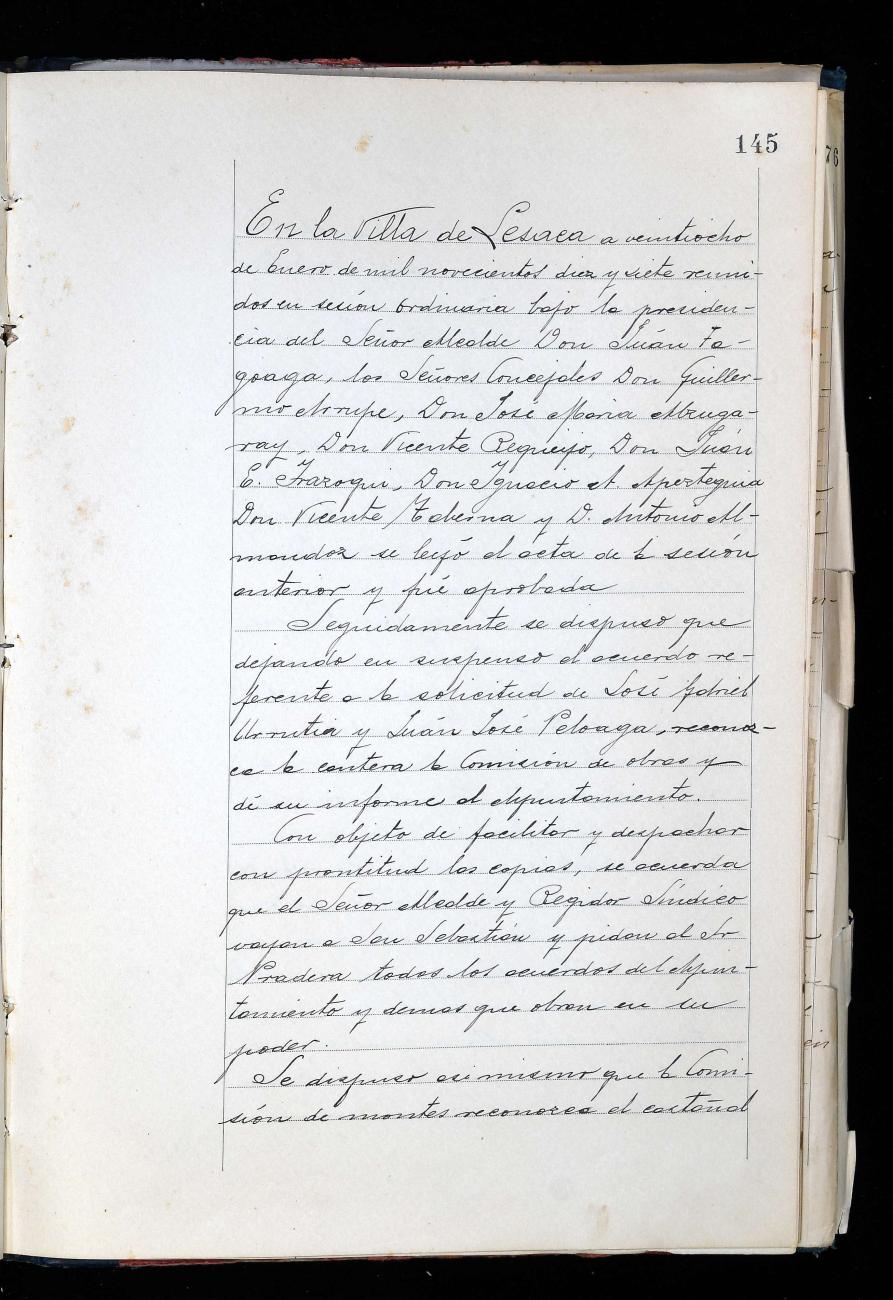 145
76
En la Villa de Lesaca a veintiocho
de Enero de mil novecientos diez y siete reuni-
dos en sesión ordinaria bajo la presiden-
cia del Señor Alcalde Don Juán Fa-
goaga, los Señores Concejales Don Guiller-
mo Arrupe, Don José Maria Alzuga-
ray, Don Vicente Requejo, Don Juán
E. Irazoqui, Don Ignacio A. Aperteguia
Don Vicente Taberna y D. Antonio Al-
mandoz se leyó el acta de la sesión
anterior y fué aprobada
Seguidamente se dispuso que
dejando en suspenso el acuerdo re-
ferente a la solicitud de José Gabriel
Urrutia y Juán José Peloaga, reconoz-
ca la cantera la Comisión de obras y
dé su informe al Ayuntamiento.
Con objeto de facilitar y despachar
con prontitud las copias, se acuerda
que el Señor Alcalde y Regidor Síndico
vayan a San Sebastián y pidan al Sr
Pradera todos los acuerdos del Ayun-
tamiento y demas que obran en su
poder.
Se dispuso asi mismo que la Comi-
sión de montes reconozca el castañal